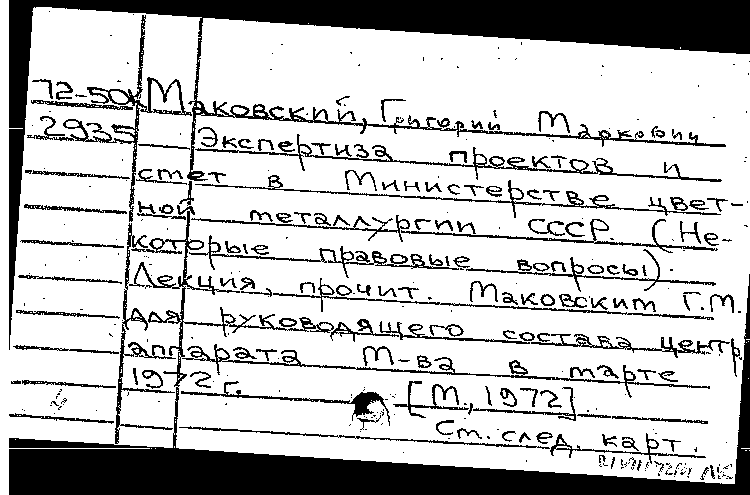 72-50к Маковский, Григорий Маркович
2935 Экспертиза проектов и
смет в Министерстве цвет-
ной металлургии СССР. (Не-
которые правовые вопросы).
Лекция, прочит. Маковским Г.М.
для руководящего состава центр.
аппарата М-ва в марте
1972 г. [М., 1972]
См. след. карт.